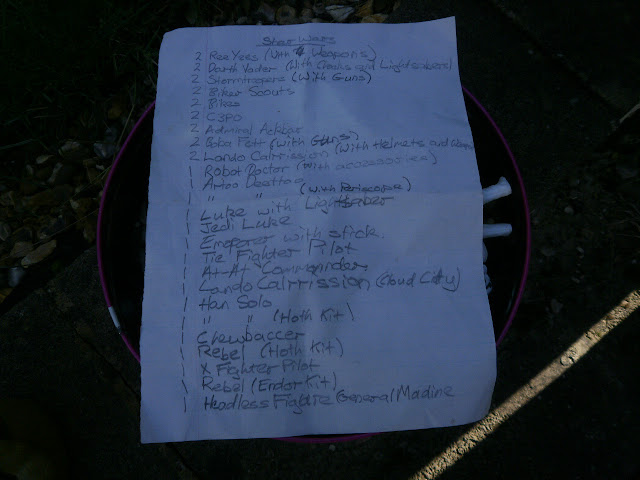 Star Wars
2 Ree Yees (With 4 Weapons)
2 Darth Vader (With Cloaks and Lightsabers)
2 Stormtroopers (With Guns)
2 Biker Scouts
2 Bikes
2 C3PO
2 Admiral Ackbar
2 Boba Fett (with Guns)
2 Lando Calrrission (With Helmets and
1 Robot Doctor (With accessories)
1 Artoo Deetoo
1 " " (With Periscope)
1 Luke with Lightsaber
1 Jedi Luke
1 Emperer with stick
1 Tie Fighter Pilot
1 At-At Commander
1 Lando Calrrission (Cloud City)
1 Han Solo
1 " " (Hoth Kit)
1 Chewbaccer
1 Rebel (Hoth Kit)
1 X Fighter Pilot
1 Rebel (Endor Kit)
1 Headless Figure General Madine